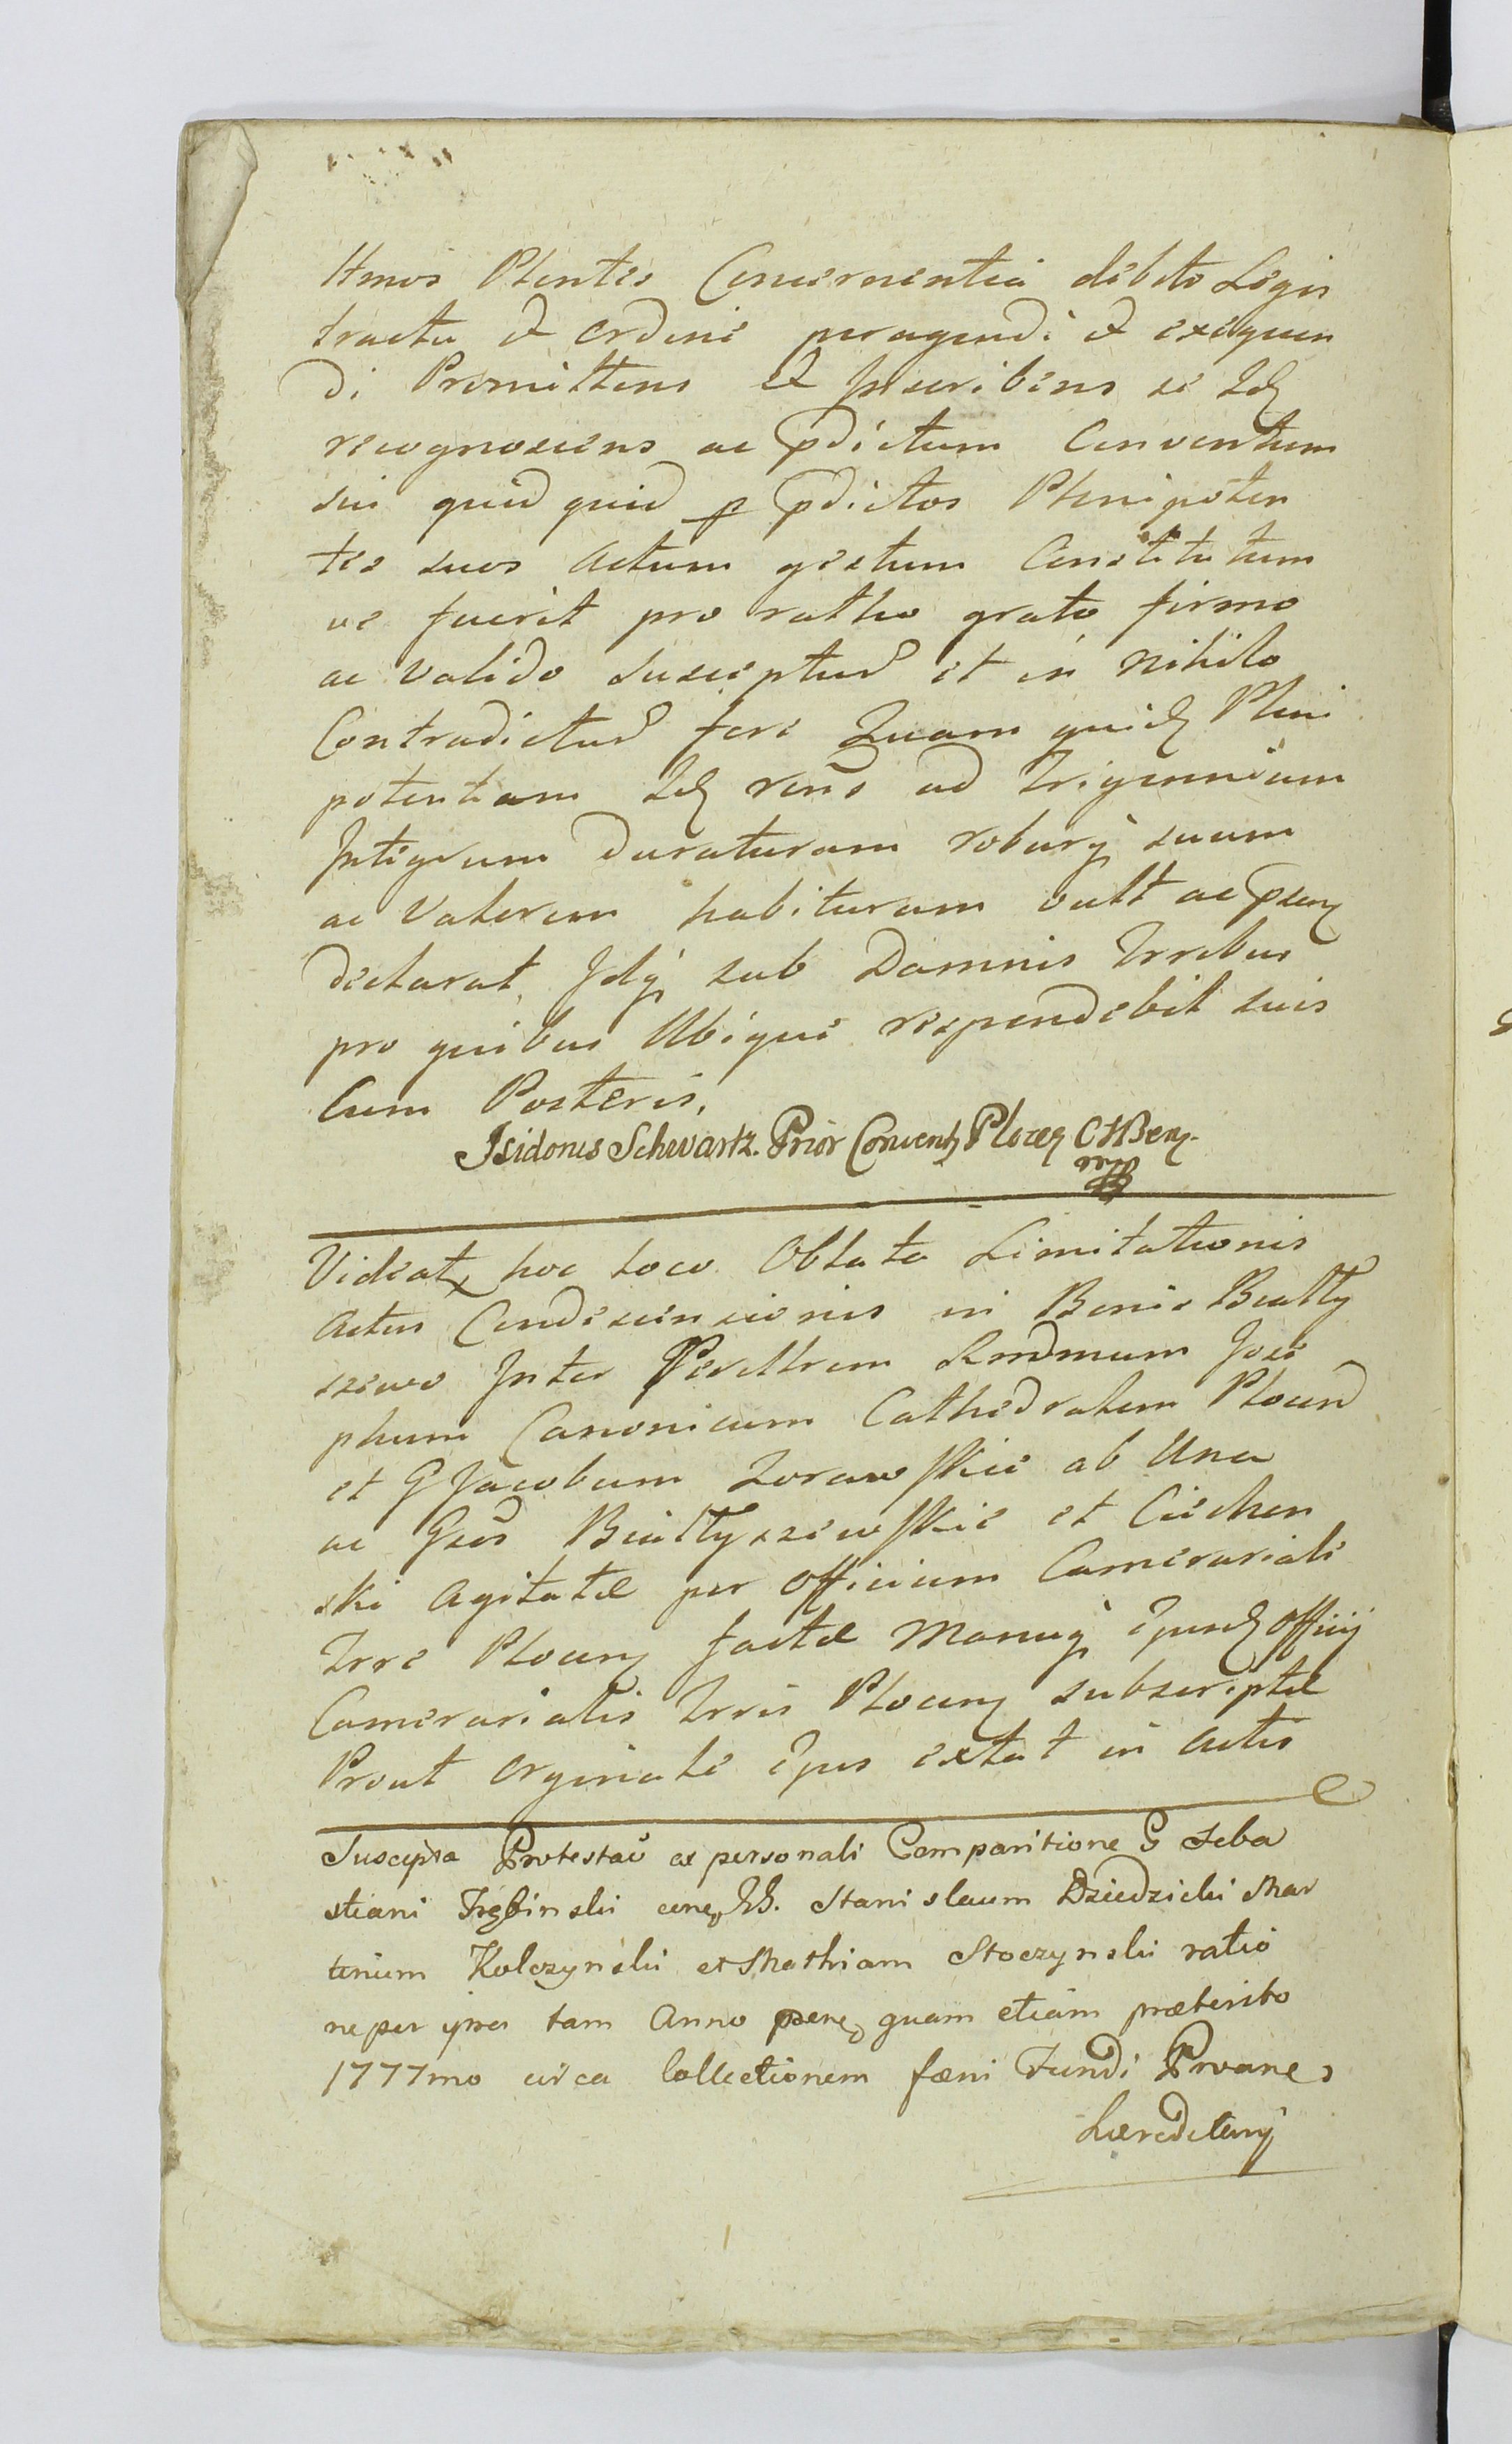 Hmoi Plentes Concernentia debito Legis
tractu et ordine peragendi et exequen
di Promittens et Inscribens se Idem
recognoscens ac pdictum Conventum
sui quid quid p pdictos Plenipoten
tes suos actum gestum Constitutum
ve fuerit pro ratho grato firmo
ac valido suscepturũ et in nihilo
Contradicturũ fore Quam quidem Pleni
potentiam Idem rens ad Trigennium
Integrum duraturam roburq suum
ac Valorem habituram vult ac pseny
declarat, Idq sub Damnis Trribus
pro quibus Ubique respondebit suis
Cum Posteris,
Isidorus Schwartz. Prior Convents Plocen
Videatr hoc loco Oblata Limitationis
actus Condescensionis in Bonis Białły
szewo Inter Perillrem Rmdmum Jose
phum Canonicum Cathedralem Plocen
et G Jacobum Zorawskie ab Una
ac Gsos Białłyszewskie et Ciechen
ski Agitatæ per Officium Camerariale
Trre Plocen factæ Manuq ejusdem Officij
Camerarialis Trris Plocen subscriptæ
Prout Orginale ejus extat in Actis
Suscepta Protestao ex personali Comparitione G Seba
stiani Trębinski cone GG. Stanislaum Dziedzicki Mar
tinum Kolczynski et Mathiam Stoczynski ratio
ne per ipsos tam Anno psene quam etiam præterito
1777mo circa Collectionem fæni Fundi
hæreditarij